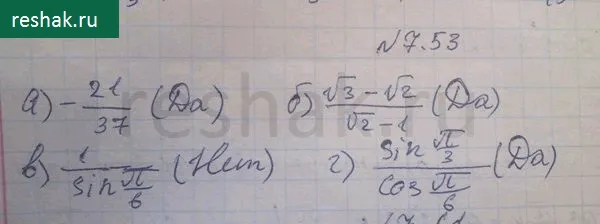 reshak.ru
№7.53
а) -21/37 (Да) б) (√3 - √2)/(√2 - 1) (Да)
в) 1/(sin π/6) (Нет) г) (sin π/3)/(cos π/6) (Да)